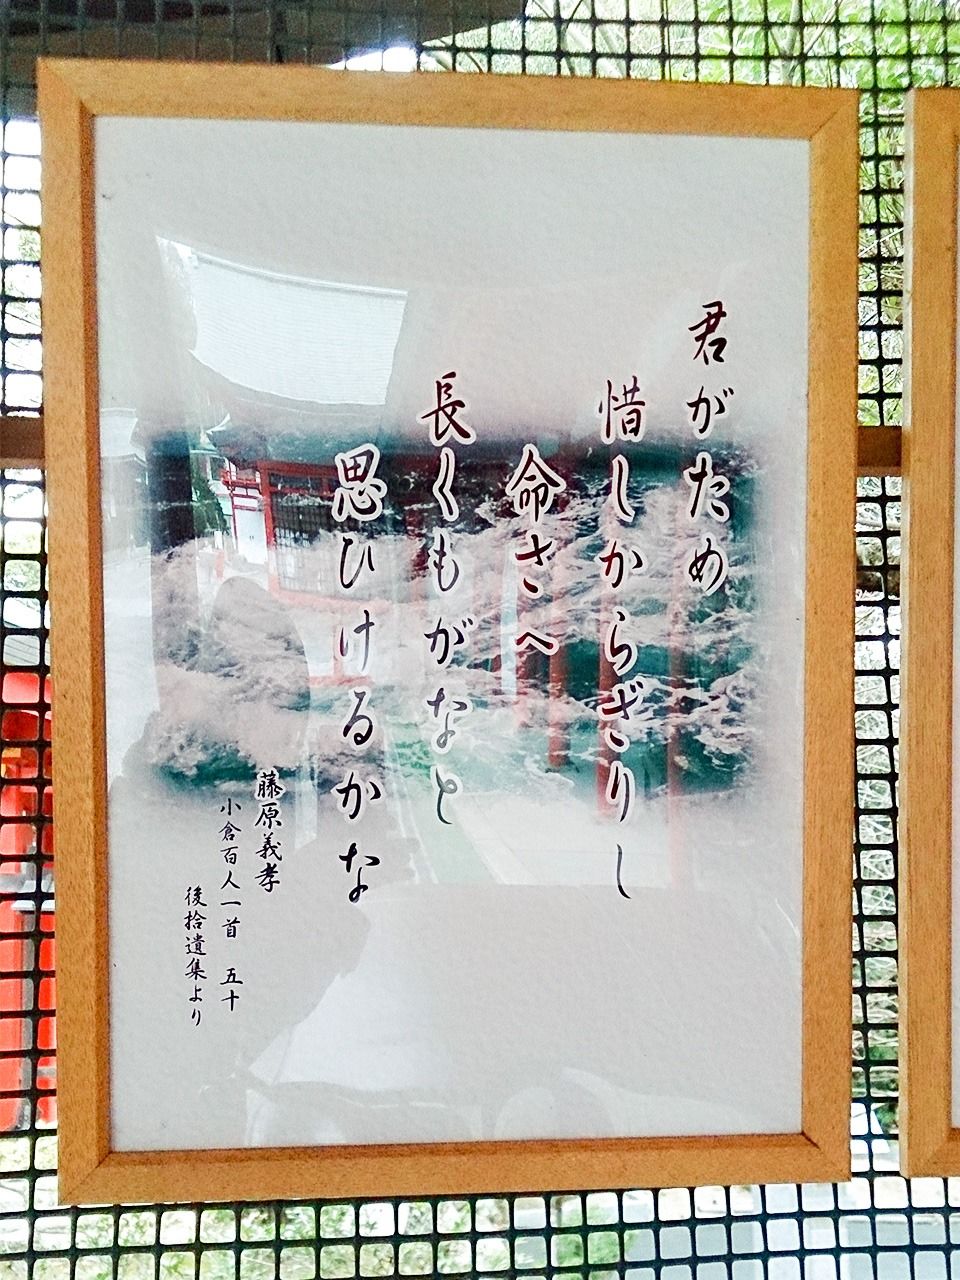 君がため
惜しからざりし
命さへ
長くもがなと
思ひけるかな
藤原義孝
小倉百人一首 五十
後拾遺集より